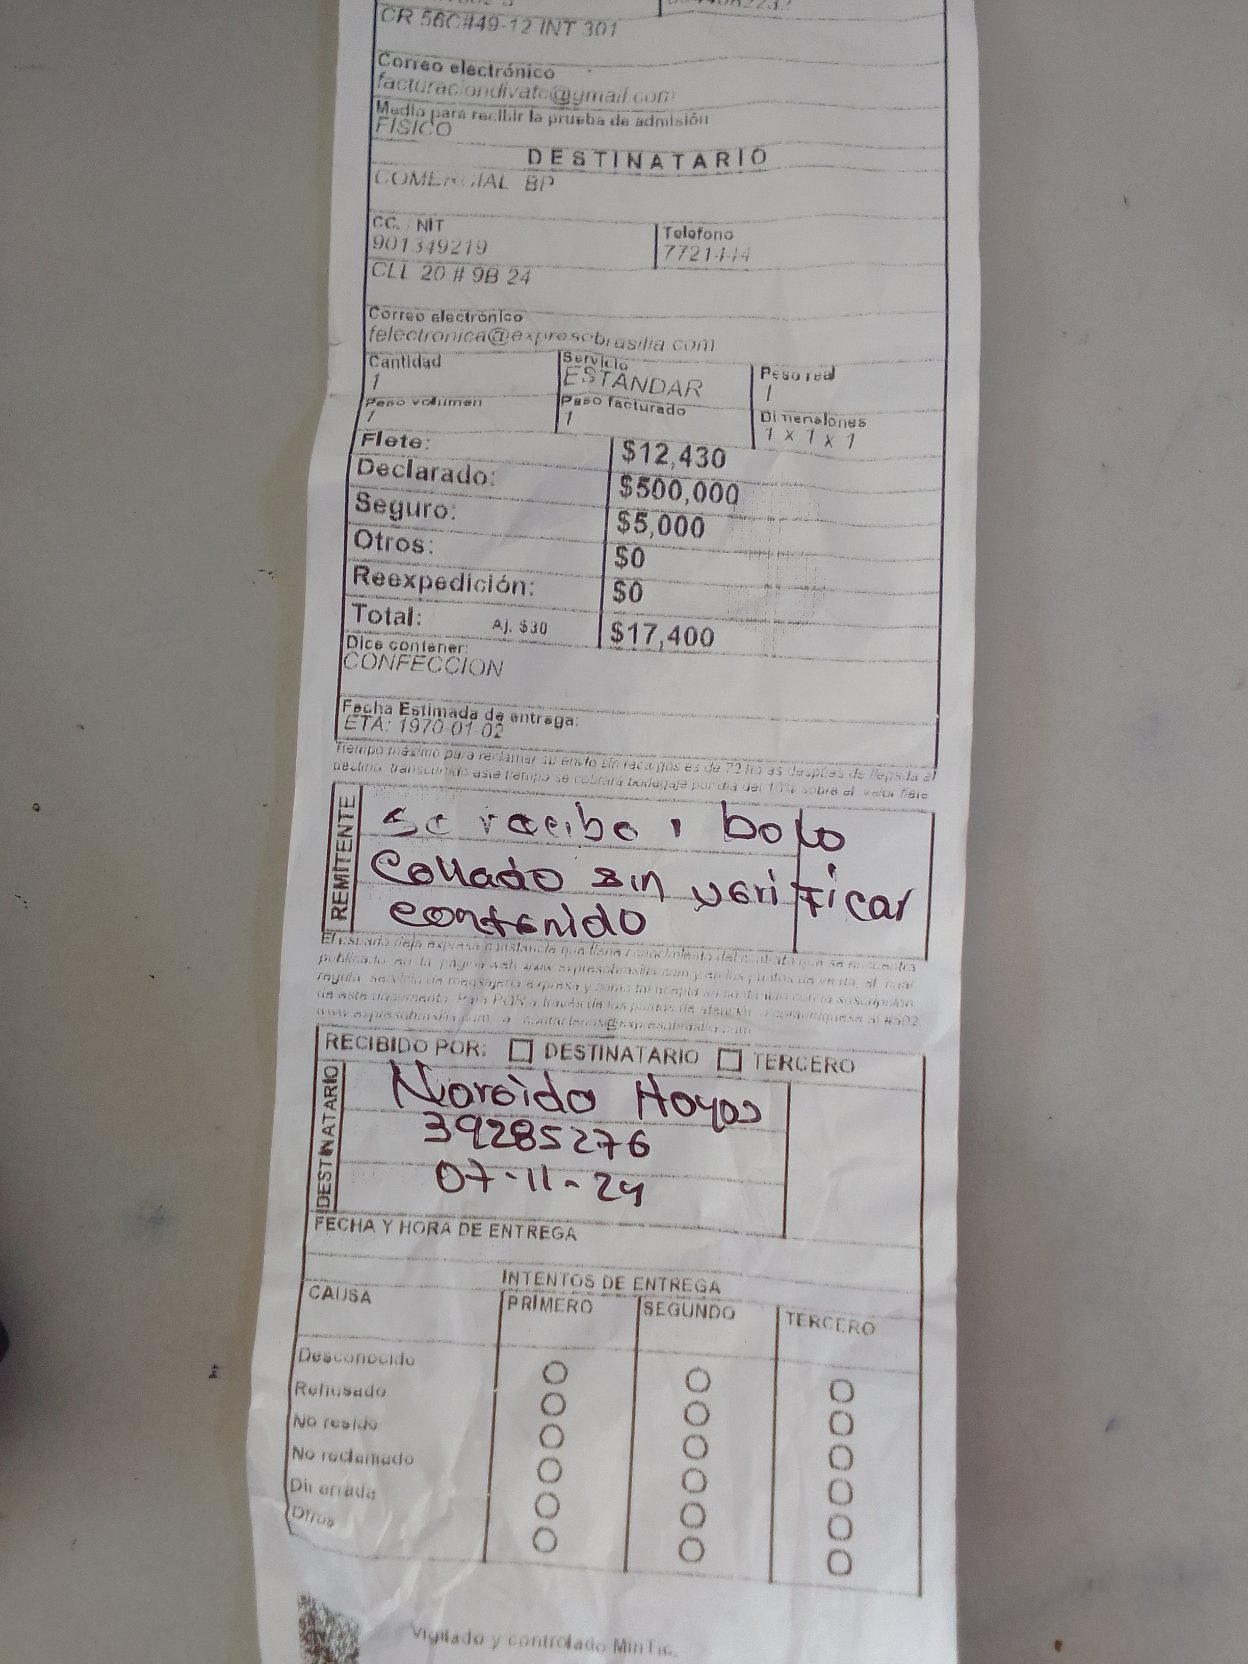 CR 56C#49-12 INT 301
Correo electrónico
facturaciondivato@gmail.com
Medio para recibir la prueba de admisión
FISICO
DESTINATARIO
COMERCIAL BP
CC. NIT
Telefono
901349219
7721444
CLL 20 # 9B 24
Correo electrónico
felectronica@expresobrasilia.com
Cantidad
Servicio
Peso real
1
ESTANDAR
1
Peso volumen
Peso facturado
Dimensiones
1
1
1 x 1 x 1
Flete: $12,430
Declarado: $500,000
Seguro: $5,000
Otros: $0
Reexpedición: $0
Total: Aj. $30 $17,400
Dice contener:
CONFECCION
Fecha Estimada de entrega:
ETA: 1970-01-02
Tiempo máximo para reclamar su envío sin recargos es de 72 horas después de llegada al
destino, transcurrido este tiempo se cobrará bodegaje por día del sobre el valor flete
REMITENTE
se recibe 1 bolo
Collado sin verificar
contenido
El usuario deja expresa constancia que tiene conocimiento del contrato que se encuentra
publicado en la página web www.expresobrasilia.com y en los puntos de venta, el cual
regula servicio de mensajería expresa y como tal acepta su contenido con la suscripción
de este documento. Para PQR a través de los puntos de atención o comuníquese al #502,
www.expresobrasilia.com o contactenos@expresobrasilia.com
RECIBIDO POR: DESTINATARIO TERCERO
DESTINATARIO
Noroido Hoyos
39285276
07-11-24
FECHA Y HORA DE ENTREGA
INTENTOS DE ENTREGA
CAUSA PRIMERO SEGUNDO TERCERO
Desconocido
Rehusado
No reside
No reclamado
Dir errada
Otros
Vigilado y controlado MinTic.